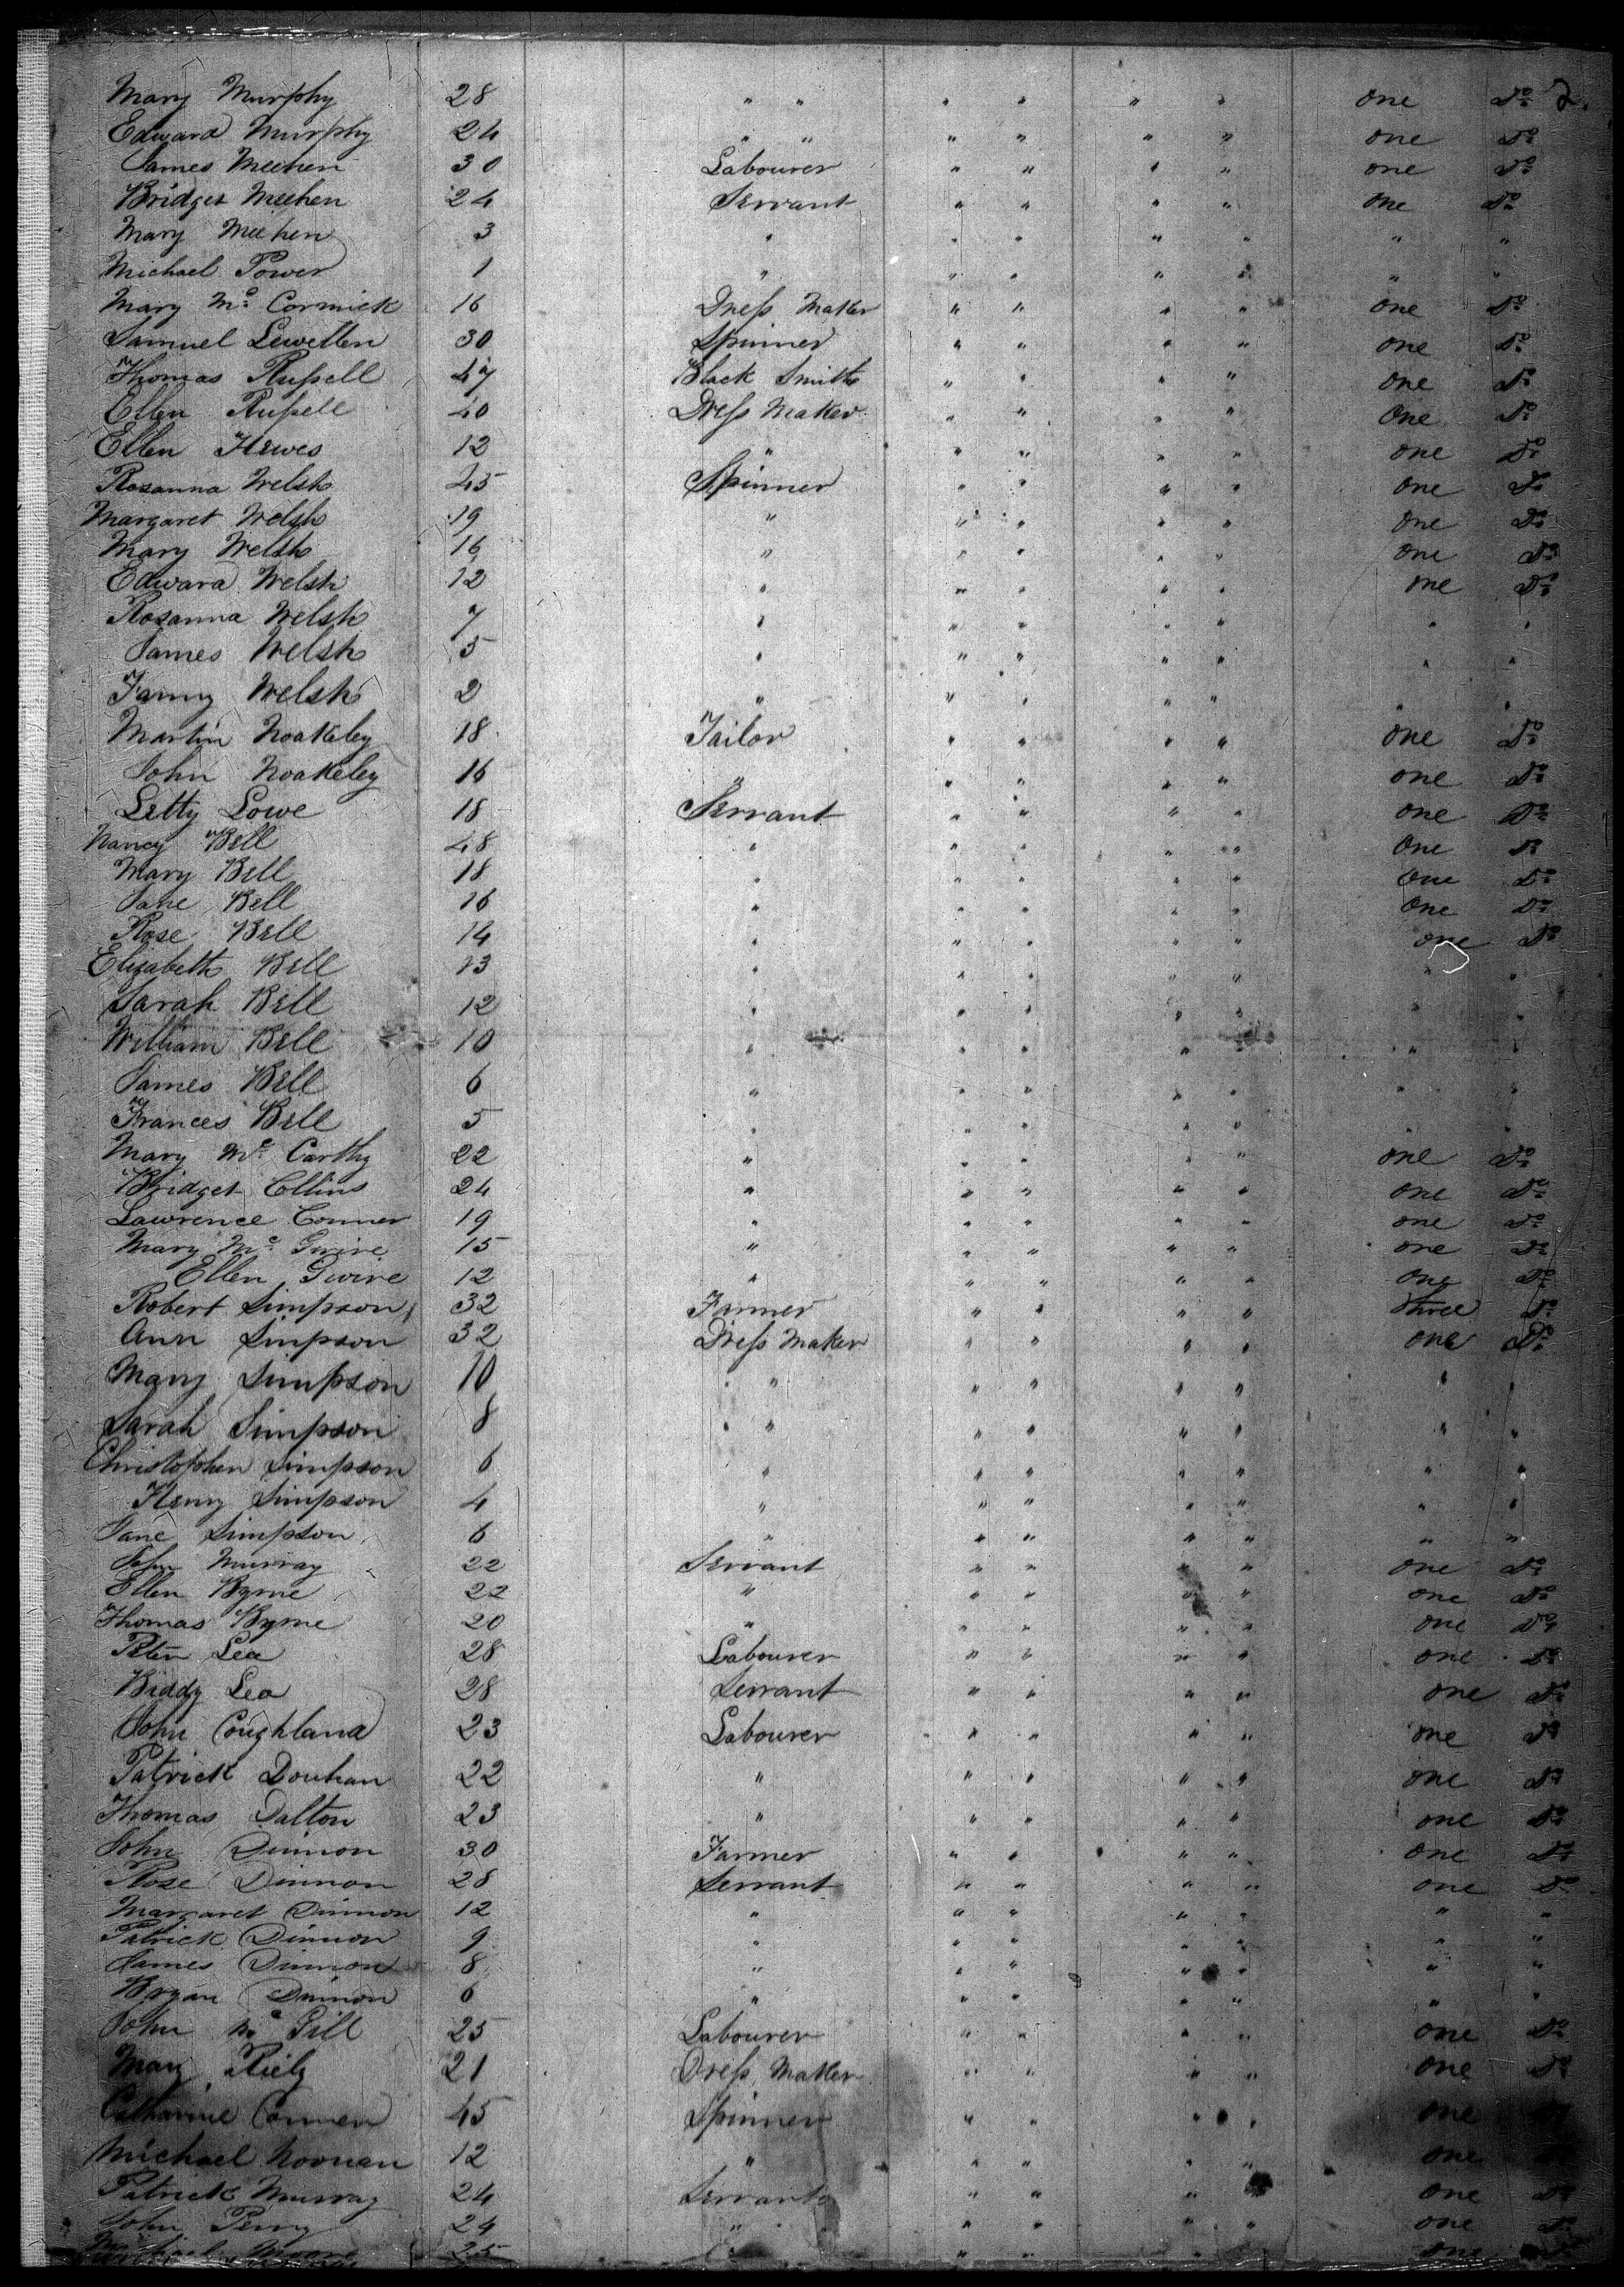 Mary Murphy 28 " " " " " " one Do 2.
Edward Murphy 24 " " " " " " one Do
James Meehen 30 Labourer " " " " one Do
Bridget Meehen 24 Servant " " " " one Do
Mary Meehen 3 " " " " " " "
Michael Power 1 " " " " " " "
Mary Mc Cormick 16 Dress Maker " " " " one Do
Samuel Lewellen 30 Spinner " " " " one Do
Thomas Russell 47 Black Smith " " " " one Do
Ellen Russell 40 Dress Maker " " " " One Do
Ellen Hewes 12 " " " " " one Do
Rosanna Welsh 45 Spinner " " " " one Do
Margaret Welsh 19 " " " " " one Do
Mary Welsh 16 " " " " " one Do
Edward Welsh 12 " " " " " one Do
Rosanna Welsh 7 " " " " " " "
James Welsh 5 " " " " " " "
Fanny Welsh 2 " " " " " " "
Martin Noakeley 18 Tailor " " " " one Do
John Noakeley 16 " " " " " one Do
Letty Lowe 18 Servant " " " " one Do
Nancy Bell 48 " " " " " One Do
Mary Bell 18 " " " " " One Do
Jane Bell 16 " " " " " One Do
Rose Bell 14 " " " " " one Do
Elizabeth Bell 13 " " " " " " "
Sarah Bell 12 " " " " " " "
William Bell 10 " " " " " " "
James Bell 6 " " " " " " "
Frances Bell 5 " " " " " " "
Mary Mc Carthy 22 " " " " " one Do
Bridget Collins 24 " " " " " one Do
Lawrence Conner 19 " " " " " one Do
Mary Mc Gwire 15 " " " " " one Do
Ellen Gwire 12 " " " " " One Do
Robert Simpson 32 Farmer " " " " three Do
Ann Simpson 32 Dress Maker " " " " one Do
Mary Simpson 10 " " " " " " "
Sarah Simpson 8 " " " " " " "
Christopher Simpson 6 " " " " " " "
Henry Simpson 4 " " " " " " "
Jane Simpson 6 " " " " " " "
John Murray 22 Servant " " " " one Do
Ellen Byrne 22 " " " " " one Do
Thomas Byrne 20 " " " " " one Do
Peter Lea 28 Labourer " " " " one Do
Biddy Lea 28 Servant " " " " one Do
John Coughland 23 Labourer " " " " one Do
Patrick Douhan 22 " " " " " one Do
Thomas Dalton 23 " " " " " one Do
John Dinnon 30 Farmer " " " " one Do
Rose Dinnon 28 Servant " " " " one Do
Margaret Dinnon 12 " " " " " " "
Patrick Dinnon 9 " " " " " " "
James Dinnon 8 " " " " " " "
Bryan Dinnon 6 " " " " " " "
John Mc Gill 25 Labourer " " " " one Do
Mary Riely 21 Dress Maker " " " " one Do
Catharine Conner 45 Spinner " " " " one
Michael Noonan 12 " " " " " one
Patrick Murray 24 Servant " " " " one Do
John Perry 24 " " " " " one Do
Michael 25 " " " " one